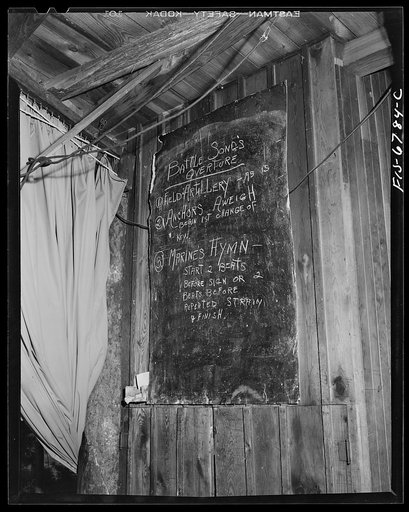 EASTMAN-SAFETY-KODAK 101
BATTLE SONGS
OVERTURE
① FIELD ARTILLERY - AS IS
② ANCHORS AWEIGH
BEGIN 1ST CHANGE OF
KEY.
③ MARINES HYMN -
START 2 BEATS
BEFORE SIGN OR 2
BEATS BEFORE
REPEATED STRAIN
& FINISH.